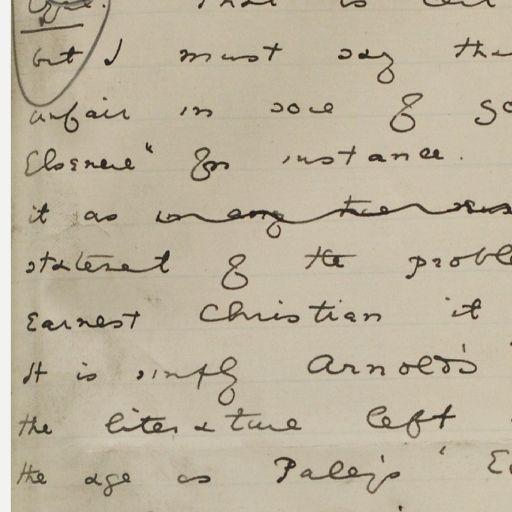 That is
but I must say
unfair in some of
Elsmere" for instance.
it as
statement of the
Earnest Christian it
It is simply Arnold's
the literature left
the age as Paley's '